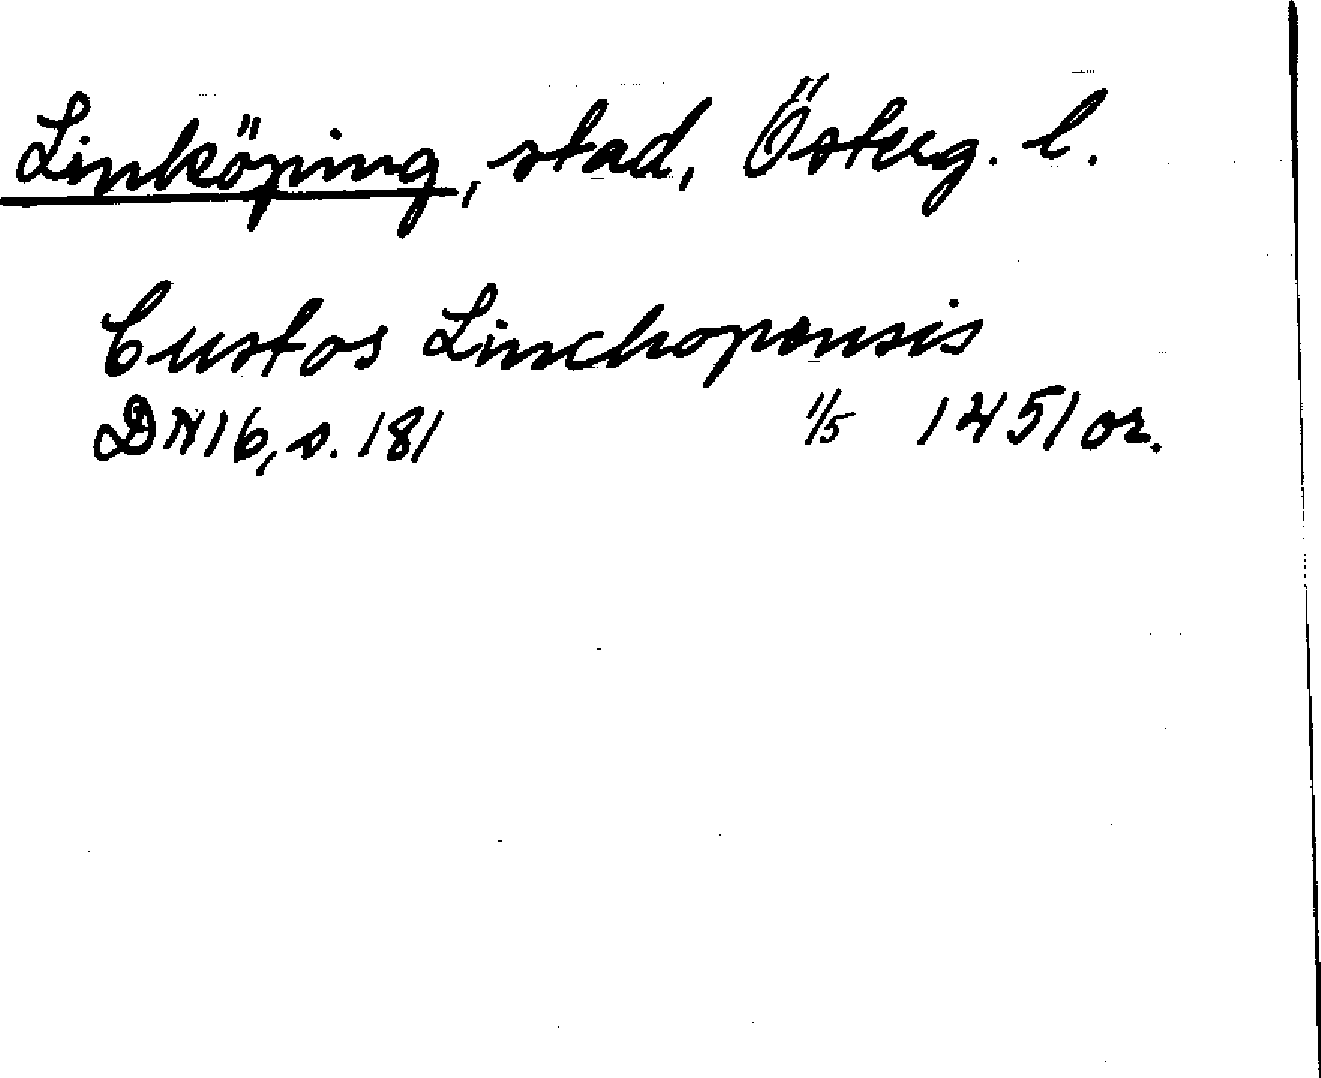 Linköping, stad, Österg. l.
Custos Linchopensis
DN 16, s. 181 1/5 1451 or.